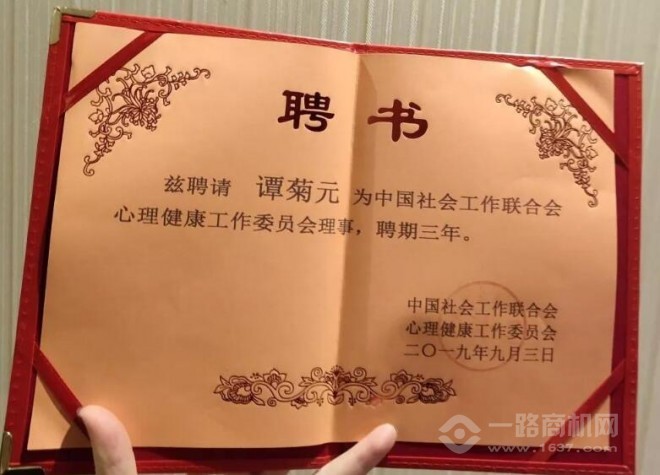 聘书
兹聘请 谭菊元 为中国社会工作联合会
心理健康工作委员会理事，聘期三年。
中国社会工作联合会
心理健康工作委员会
二〇一九年九月三日
一路商机网
www.1637.com